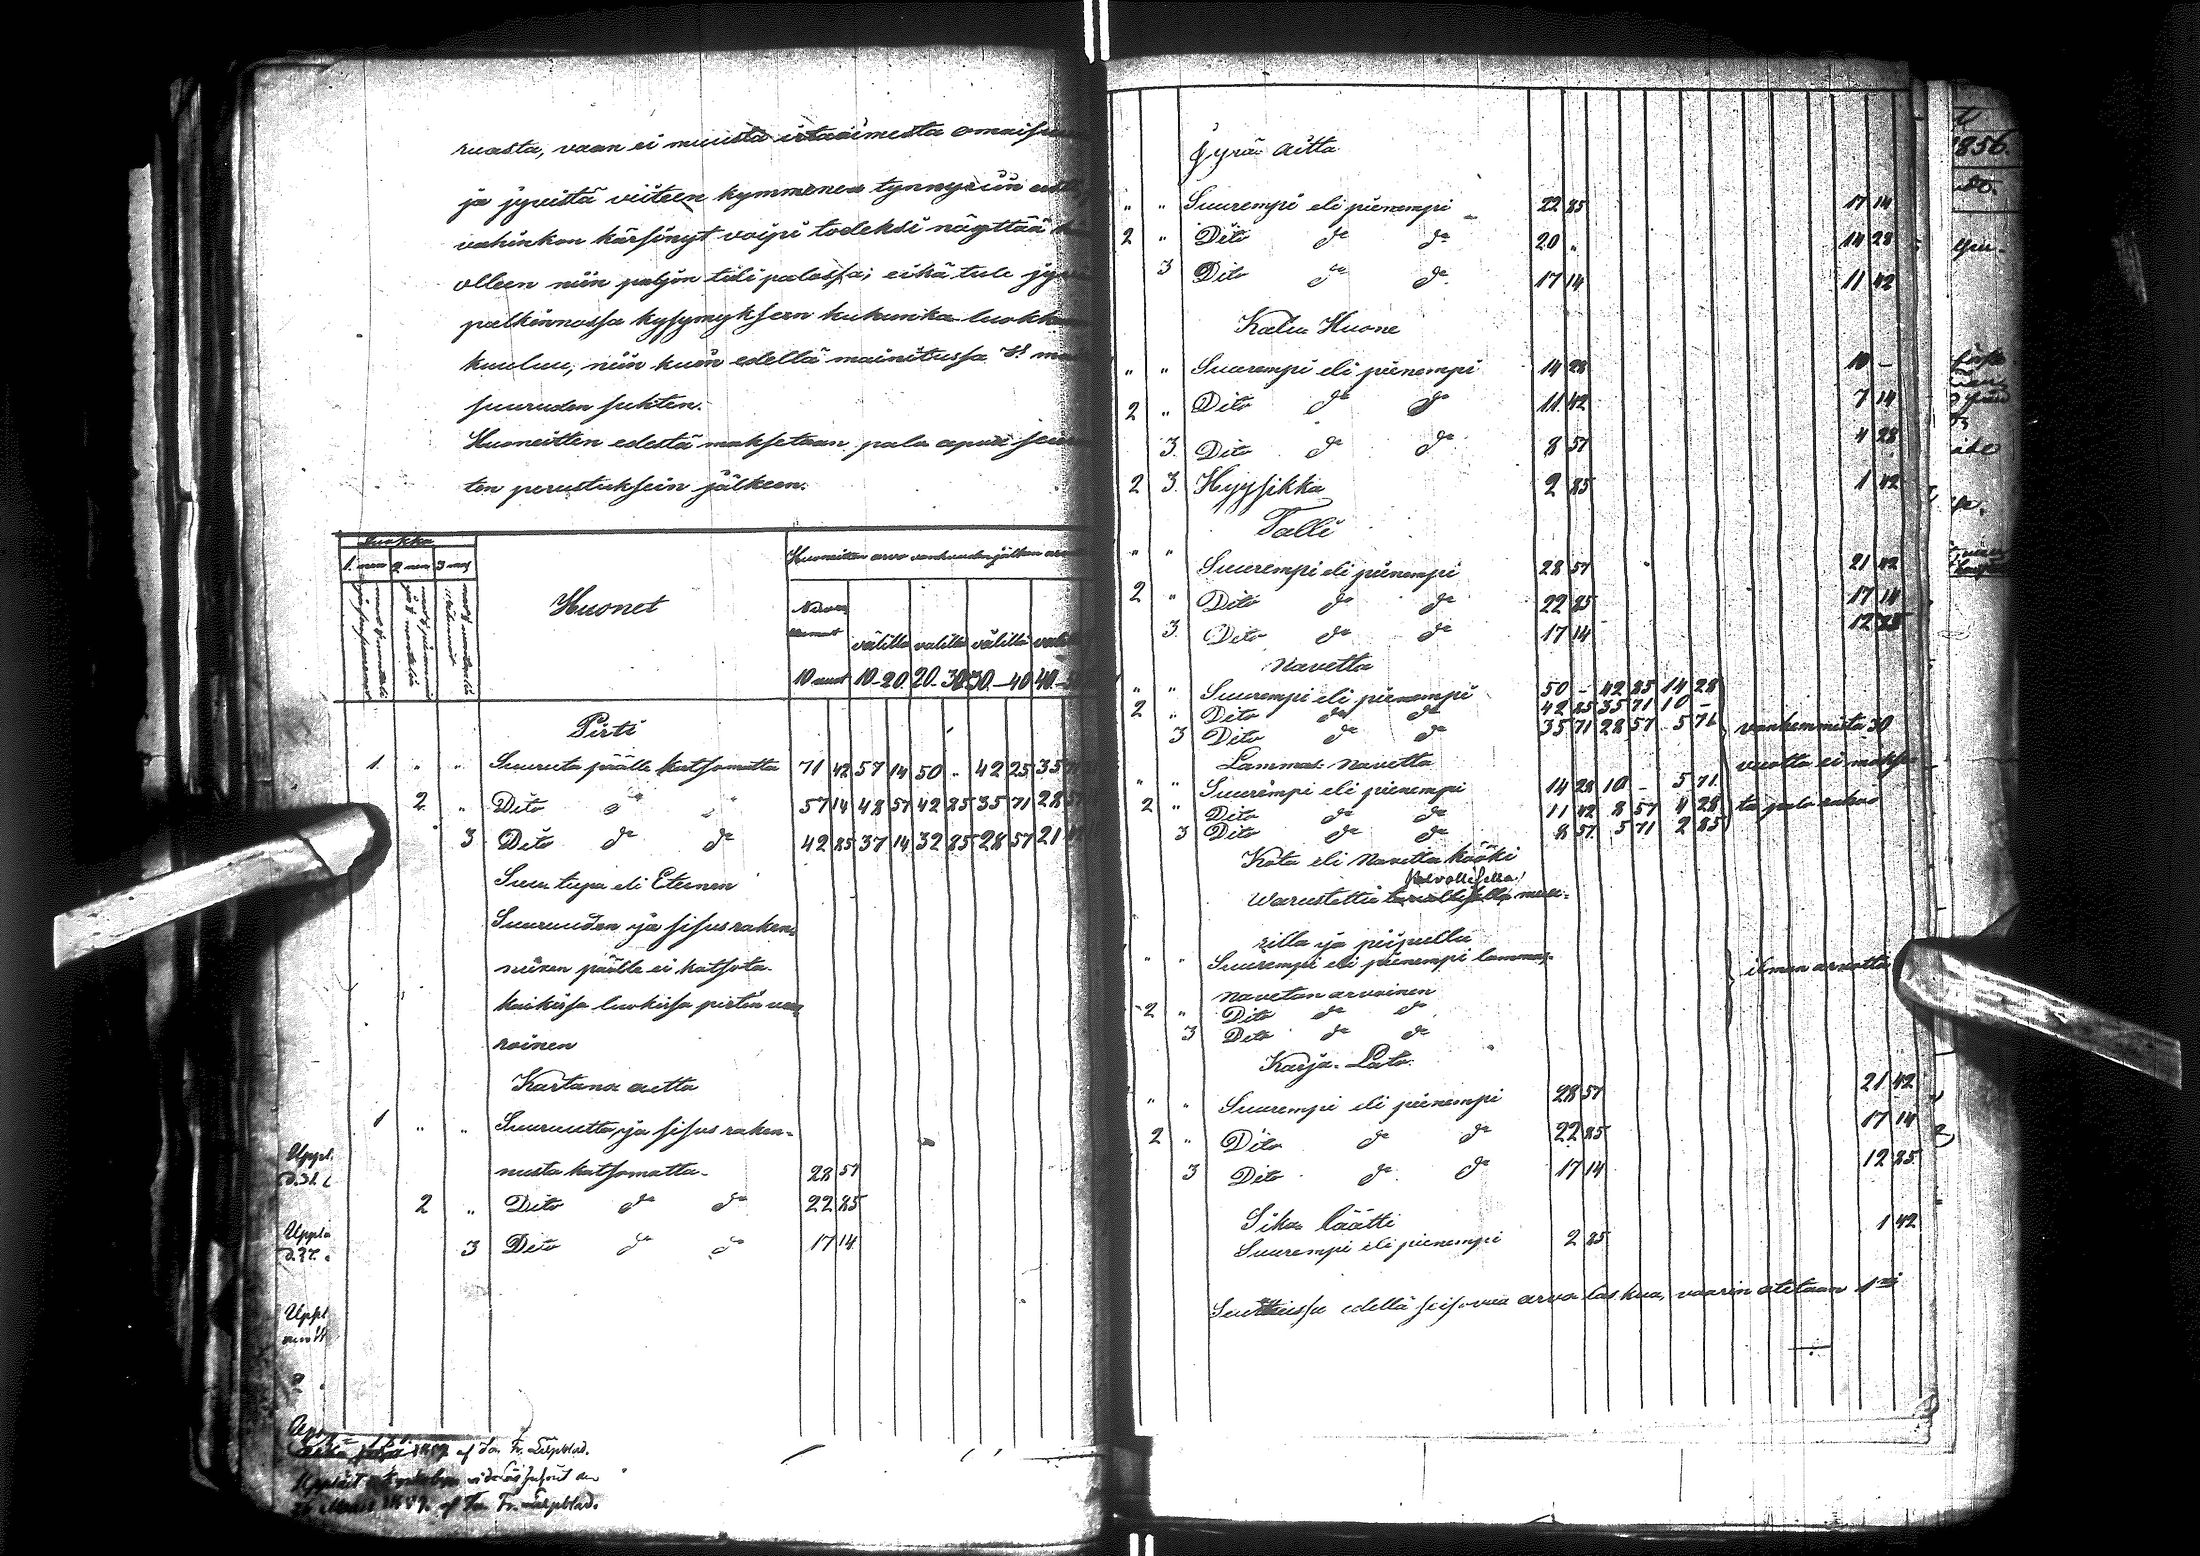 ruasta, vaan ei muusta irtaimesta omaisu
ja jyvistä viiteen kymmeneen tynnyriin asti,
vahinkon kärsinyt voipi todeksi näyttää
olleen niin paljon tili palossa; eikä tule jy
palkinnossa kysymykseen kukunka luokk
kuuluu, niin kuin edellä mainitussa §§
suuruden suhten.
Huoneitten edestä maksetaan palo apua seu
ten perustuksein jälkeen.
Luokka
1. nen 2 nen 3 mas
Huonet
Huoneitten arvo vanhuuden jälken
10 vuot
välillä 10-20
välillä 20-30
välillä 30-40
40-
Pirti
1. " " Suuruta päälle katsomatta 71 42 57 14 50 " 42 25 35
2 " Dito 57 14 48 57 42 85 35 71 28
3 Dito do do 42 85 37 14 32 85 28 57 21
Suu tupa eli Eteinen
Suuruuden ja sisus raken-
nuxen päälle ei katsota
kaikissa luokissa pirtin
roinen
Kartano aitta
1 " " Suuruutta, ja sisus raken-
nusta katsomatta 28 57
2 " Dito do do 22 85
3 Dito do do 17 14
Uppl.
Uppl
1859 af Joh. Fr. Liljeblad.
af Joh. Fr. Liljeblad.
Jyvä aitta
" " Suurempi eli pienempi 22 85 17 14
2 " Dito do do 20 " 14 28
3 Dito do do 17 14 11 42
Kalu Huone
" " Suurempi eli pienempi 14 28 10 -
2 " Dito do do 11 42 7 14
3 Dito do do 8 57 4 28
2 3 Hyysikkä 2 85 1 42
Talli
" " Suurempi eli pienempi 28 57 21 42
2 " Dito do do 22 85 17 14
3 Dito do do 17 14 12 85
Navetta
" " Suurempi eli pienempi 50 - 42 85 14 28
2 " Dito do do 42 85 35 71 10 -
3 Dito do do 35 71 28 57 5 71 vanhemmista 30
vuotta ei makse-
ta palo rahaa
Lammas Navetta
" " Suurempi eli pienempi 14 28 10 - 5 71
2 " Dito do do 11 42 8 57 4 28
3 Dito do do 8 57 5 71 2 85
Kota eli Navetta kööki
kelvollisella
Warustettu muu-
rilla ja piipulla
" " Suurempi eli pienempi lammas- ilman arvotta
navetan arvoinen
2 " Dito do do
3 Dito do do
Karja Lato
" " Suurempi eli pienempi 28 57 21 42
2 " Dito do do 22 85 17 14
3 Dito do do 17 14 12 85
Sika läätti
Suurempi eli pienempi 2 85 1 42
edellä seisovaa arvo laskua, vaarin otetaan 1
1856.